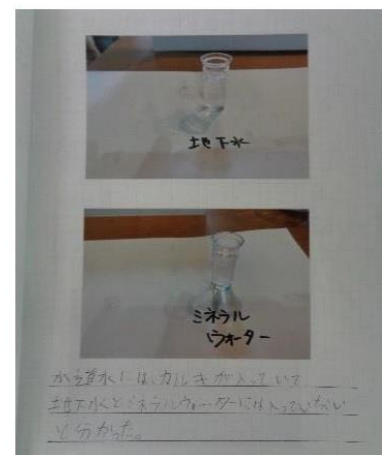 地下水
ミネラル
ウォーター
水道水には、カルキが入っていて
地下水とミネラルウォーターには入っていない
と分かった。